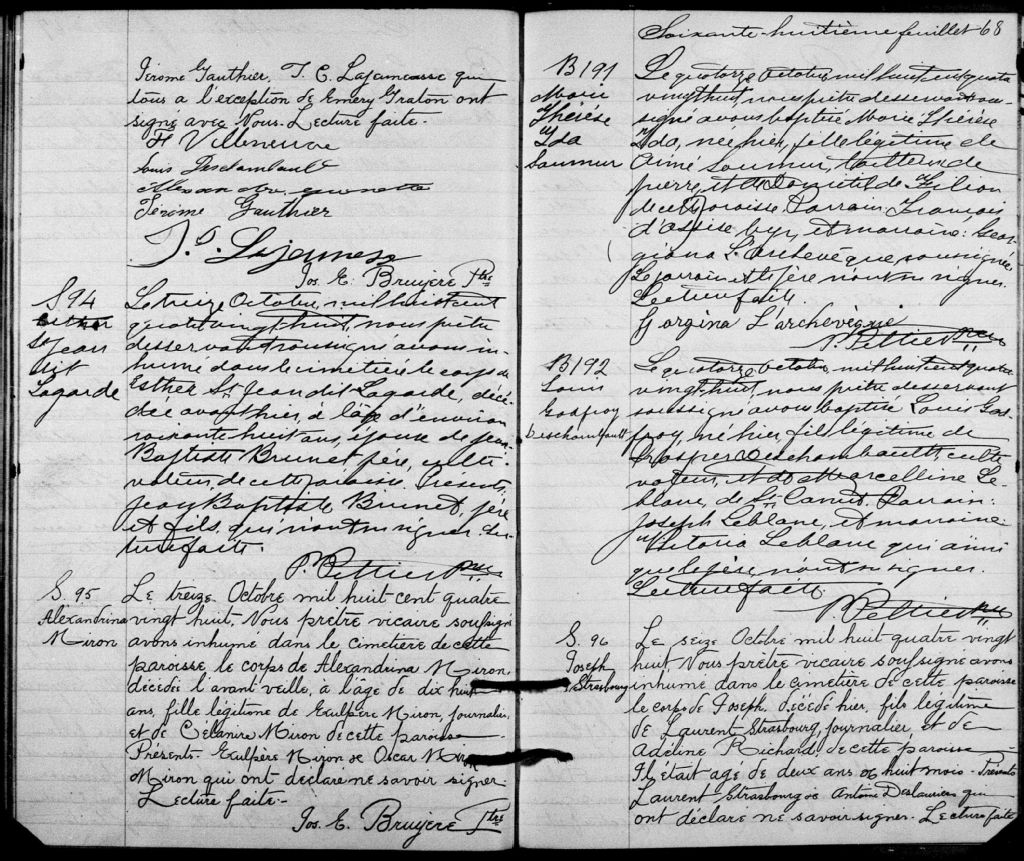 Jérome Gauthier, T. E. Lajeunesse qui
tous a l'exception de Emery Graton ont
signe avec Nous. Lecture faite.-
F Villeneuve
Louis Deschambault
Jérome Gauthier
Lajeunesse
Jos. E. Bruyère Ptre
S. 94
Esther
St Jean
dit
Lagarde
Le treize Octobre, mil huit cent
quatre vingt huit, nous prêtre
desservant soussigné avons in-
humé dans le cimetière le corps de
Esther St Jean dit Lagarde, décé-
dée avant hier, à l'âge d'environ
soixante huit ans, épouse de Jean
Baptiste Brunet père, culti-
vateur, de cette paroisse. Présents,
Jean Baptiste Brunet, père
et fils, qui n'ont su signer. Lec-
ture faite.
P. Peltier Ptre
S. 95
Alexandrina
Miron
Le treize Octobre mil huit cent quatre
vingt huit, Nous prêtre vicaire soussigné
avons inhumé dans le cimetiere de cette
paroisse le corps de Alexandrina Miron,
décédée l'avant veille, a l'âge de dix huit
ans, fille légitime de Exulpère Miron, journalier,
et de Célanire Miron de cette paroisse
Présents. Exulpère Miron & Oscar Miron
Miron qui ont déclaré ne savoir signer.
Lecture faite.-
Jos. E. Bruyère Ptre
Soixante-huitième feuillet 68
B191
Marie
Thérèse
Ida
Saumur
Le quatorze Octobre, mil huit cent quatre
vingt huit, nous prêtre desservant sous-
signé avons baptisé Marie Thérèse
Ida, née hier, fille légitime de
Aimé Saumur, tailleur de
pierre, et de Domitil de Filion
de cette paroisse. Parrain: François
d'assise Cyr, et marraine: Geor-
giana L'archevêque soussignée
Le parrain et le père n'ont su signer.
Lecture faite.
Gorgina L'archevêque
P. Peltier Ptre
B192
Louis
Godfroy
Deschambault
Le quatorze Octobre, mil huit cent quatre
vingt huit, nous prêtre desservant
soussigné avons baptisé Louis God-
froy, né hier, fils légitime de
Prosper Deschambault, culti-
vateur, et de Marcelline Le-
blanc, de St Canut. Parrain:
Joseph Leblanc, et marraine:
Victoria Leblanc qui ainsi
que le père n'ont su signer.
Lecture faite
P. Peltier Ptre
S. 96
Joseph
Strasbourg
Le seize Octobre mil huit quatre vingt
huit Nous prêtre vicaire soussigné avons
inhumé dans le cimetière de cette paroisse
le corps de Joseph, décédé hier, fils légitime
de Laurent Strasbourg, journalier, et de
Adeline Richard de cette paroisse
Il était age de deux ans & huit mois - Présents
Laurent Strasbourg & Antoine Deslauriers qui
ont déclaré ne savoir signer. Lecture faite